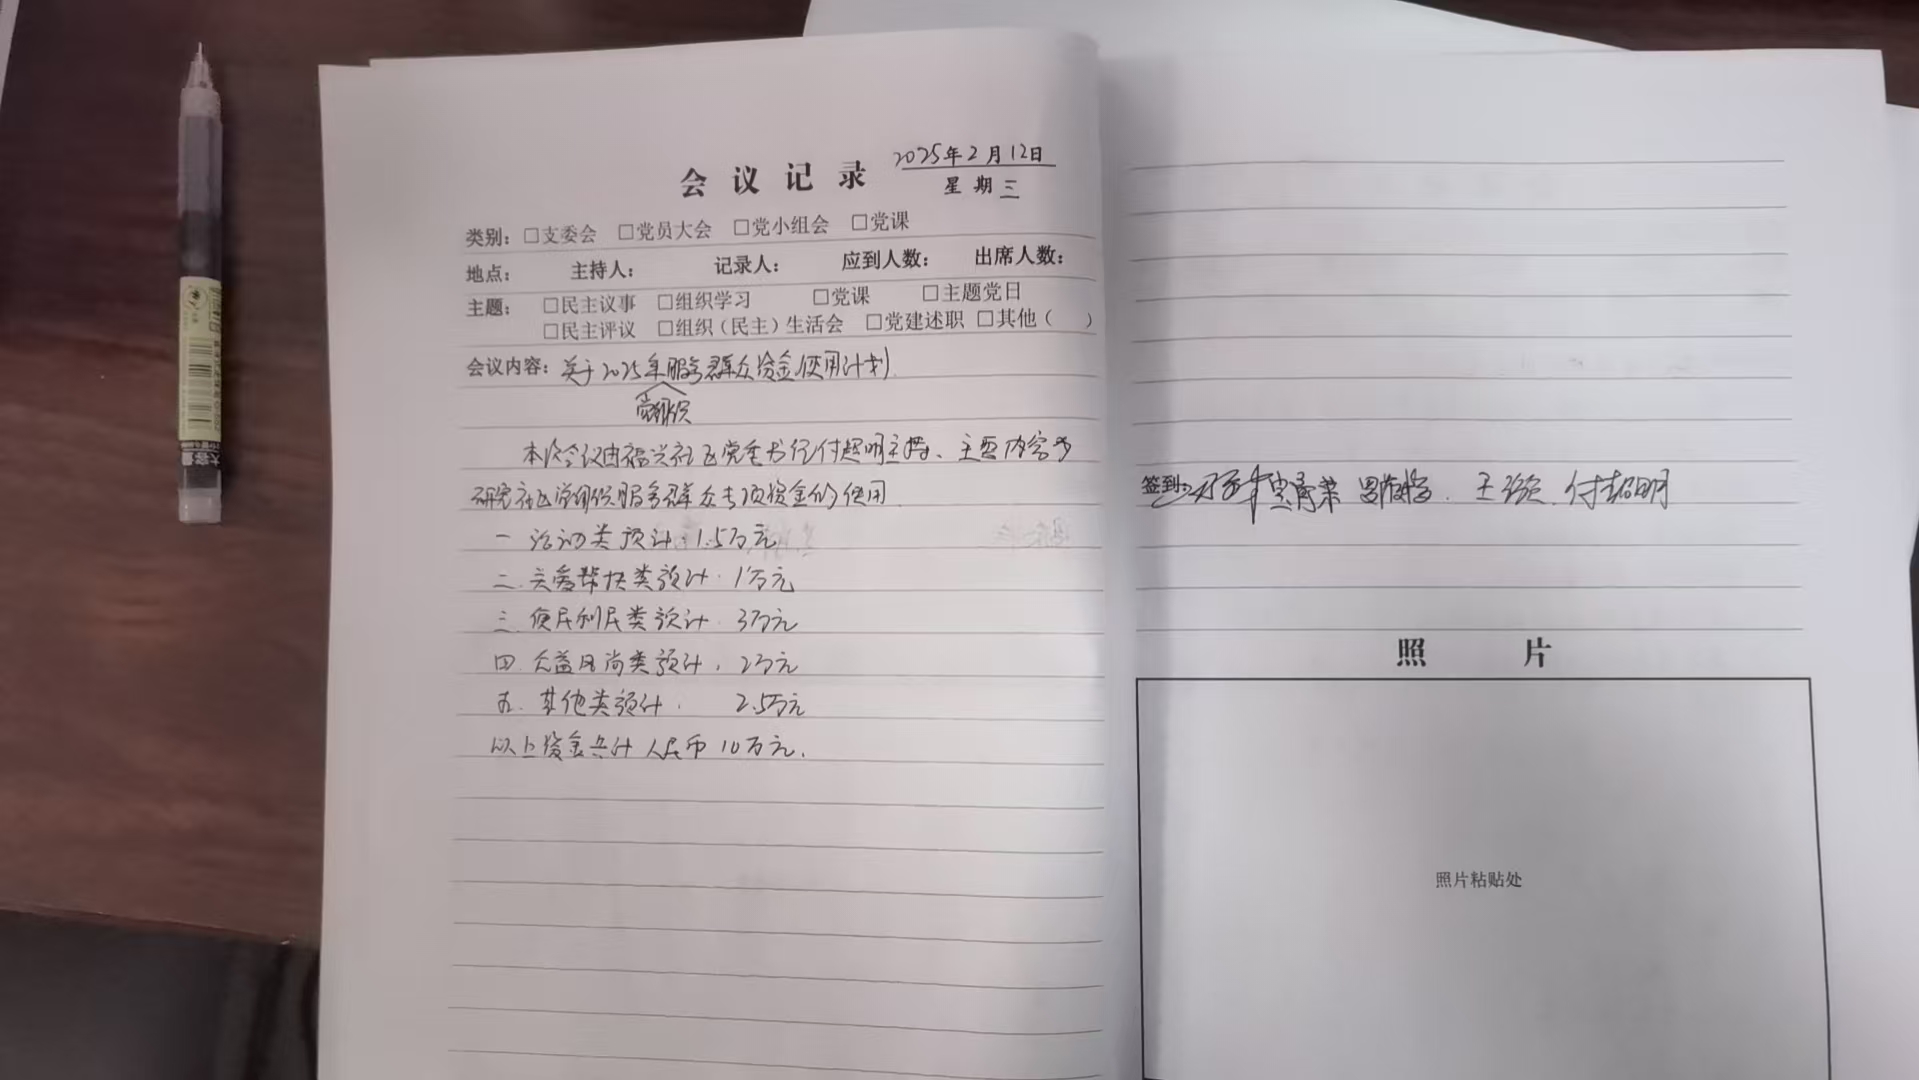 会议记录 2025年2月12日
星期三
类别：□支委会 □党员大会 □党小组会 □党课
地点： 主持人： 记录人： 应到人数： 出席人数：
主题： □民主议事 □组织学习 □党课 □主题党日
□民主评议 □组织（民主）生活会 □党建述职 □其他（ ）
会议内容：关于2025年服务群众资金使用计划
党组织
本次会议由福兴社区党委书记付超明主持、主要内容为
研究社区党组织服务群众专项资金的使用
一 培训类预计：1.5万元
二.关爱帮扶类预计：1万元
三.便民利民类预计：3万元
四.公益风尚类预计：2万元
五.其他类预计： 2.5万元
以上资金共计人民币10万元.
签到： 付超明
照 片
照片粘贴处
大容量